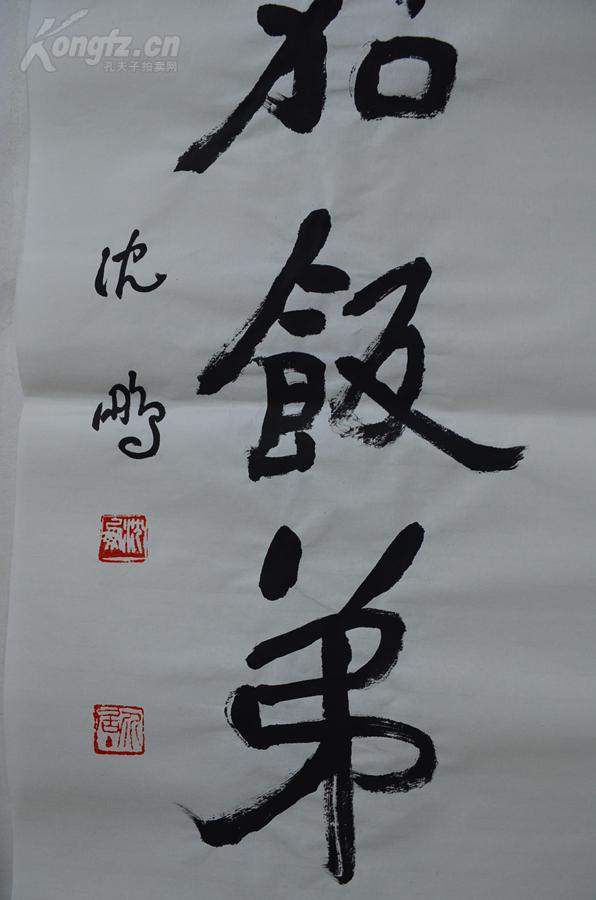 Kongfz.cn
孔夫子拍卖网
飯弟
沈鹏